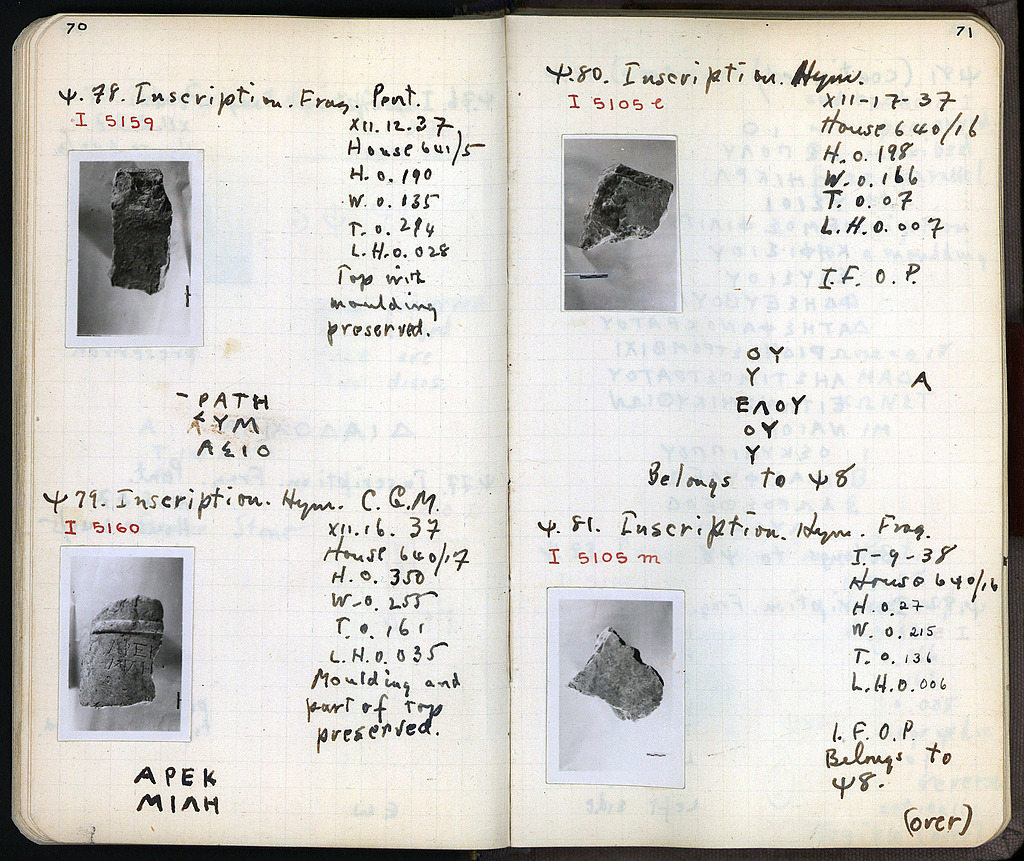 70
Ψ.78. Inscription. Frag. Pent.
I 5159
XII.12.37
House 641/5
H.0.190
W.0.135
T.0.294
L.H.0.028
Top with
moulding
preserved.
ΡΑΤΗ
ΥΜ
ΑΣΙΟ
Ψ79. Inscription. Hym. C.C.M.
I 5160
XII.16.37
House 640/17
H.0.350
W.0.255
T.0.161
L.H.0.035
Moulding and
part of top
preserved.
ΑΡΕΚ
ΜΙΛΗ
71
Ψ.80. Inscription. Hym.
I 5105 e
XII-17-37
House 640/16
H.0.198
W.0.166
T.0.07
L.H.0.007
I.F.O.P.
ΟΥ
Υ Α
ΕΛΟΥ
ΟΥ
Υ
Belongs to Ψ8
Ψ.81. Inscription. Hym. Frag.
I 5105 m
I-9-38
House 640/16
H.0.27
W.0.215
T.0.136
L.H.0.006
I.F.O.P.
Belongs to
Ψ8.
(over)